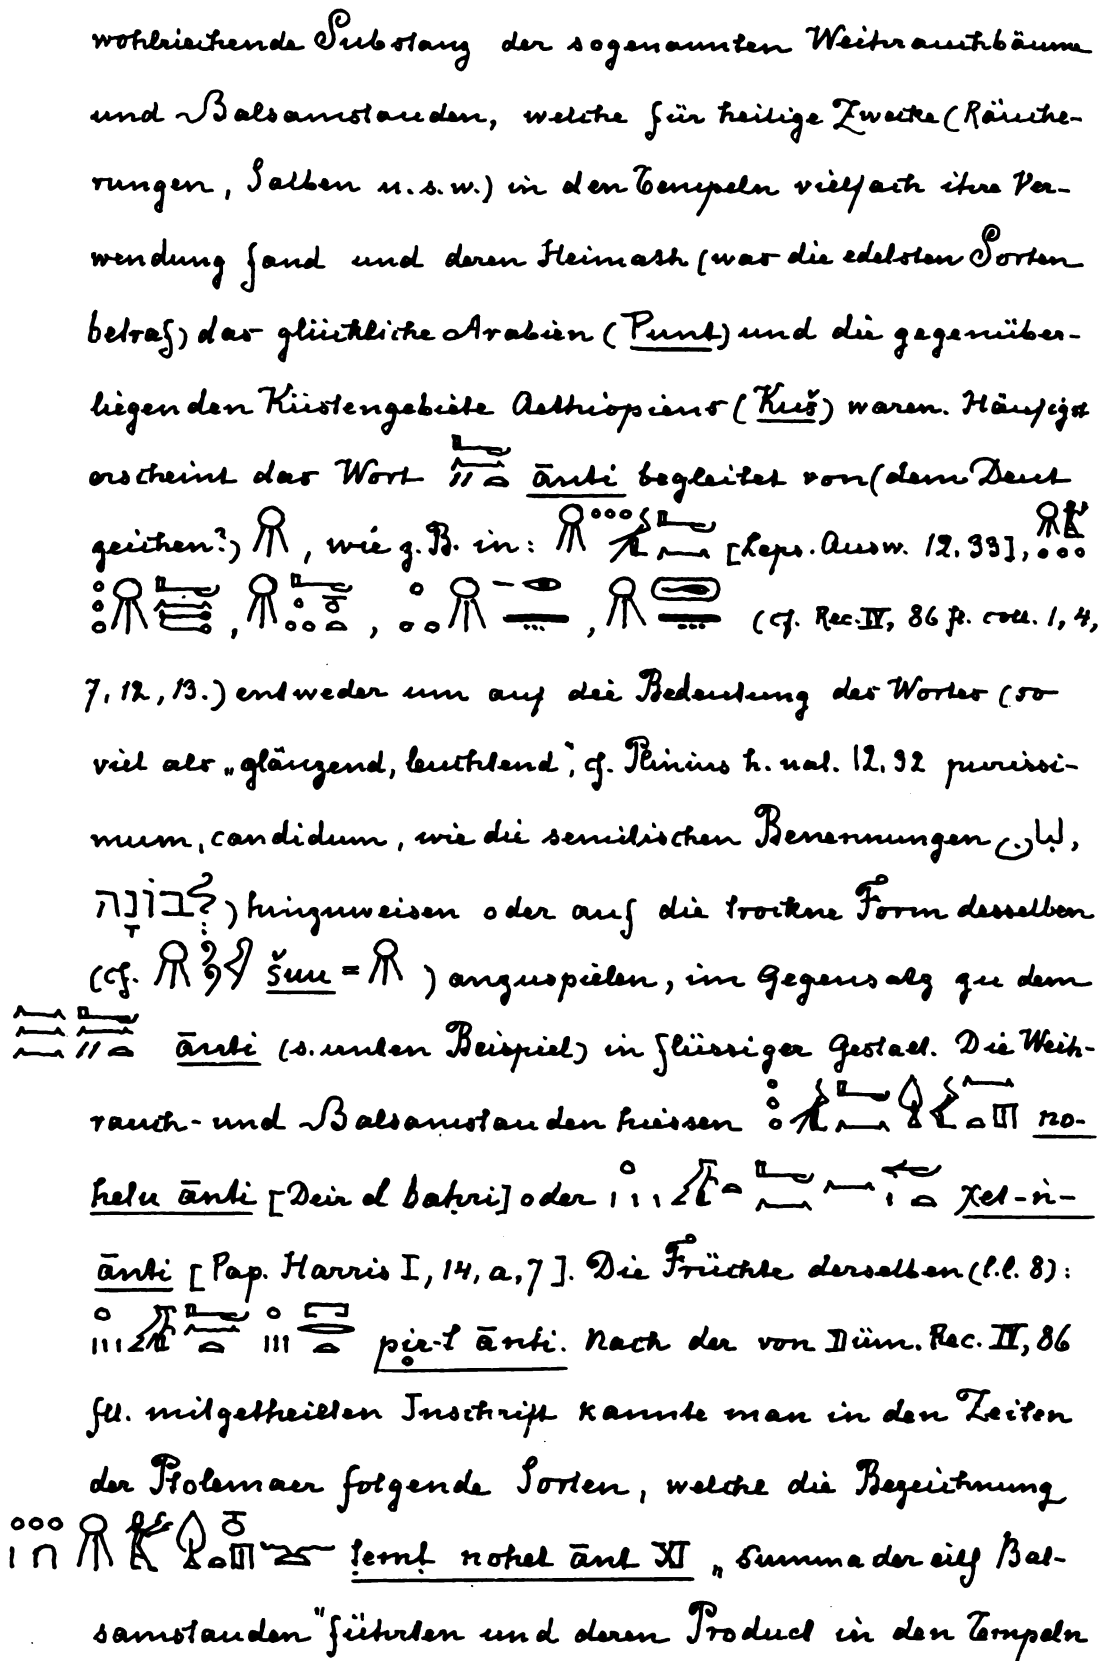 wohlriechende Substanz der sogenannten Weihrauchbäume
und Balsamstauden, welche für heilige Zwecke (Räuche-
rungen, Salben u.s.w.) in den Tempeln vielfach ihre Ver-
wendung fand und deren Heimath (was die edelsten Sorten
betraf) das glückliche Arabien (Punt) und die gegenüber-
liegenden Küstengebiete Aethiopiens (Kuš) waren. Häufigst
erscheint das Wort ānti begleitet von (dem Deut
zeichen?), wie z.B. in: [Leps. Ausw. 12,33],
, , , (cf. Rec. IV, 86 fl. coll. 1, 4,
7, 12, 13.) entweder um auf die Bedeutung des Wortes (so
viel als „glänzend, leuchtend", cf. Plinius h. nat. 12, 32 purissi-
mum, candidum, wie die semitischen Benennungen لبان,
לבוֹנָה) hinzuweisen oder auf die trockne Form desselben
(cf. šuu = ) anzuspielen, im Gegensatz zu dem
ānti (s. unten Beispiel) in flüssiger Gestalt. Die Weih-
rauch- und Balsamstauden hiessen no-
hetu ānti [Deir el baḥri] oder χet-n-
ānti [Pap. Harris I, 14, a, 7]. Die Früchte derselben (l.l. 8):
pir-t ānti. Nach der von Düm. Rec. IV, 86
fll. mitgetheilten Inschrift kannte man in den Zeiten
der Ptolemaer folgende Sorten, welche die Bezeichnung
ṭemṭ nohet ānt XI „Summa der eilf Bal-
samstauden" führten und deren Product in den Tempeln